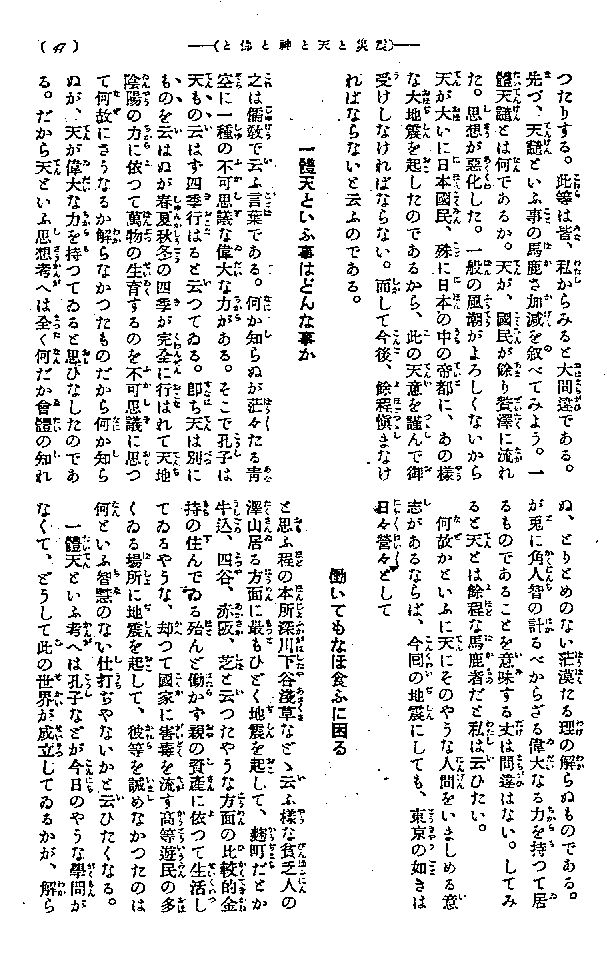 (47)
──(と佛と神と天と災震)──
つたりする。此等は皆、私からみると大間違である。
先づ、天譴といふ事の馬鹿さ加減を叙べてみよう。一
體天譴とは何であるか。天が、國民が餘り贅澤に流れ
た。思想が惡化した。一般の風潮がよろしくないから
天が大いに日本國民、殊に日本の中の帝都に、あの樣
な大地震を起したのであるから、此の天意を謹んで御
受けしなければならない。而して今後、餘程愼まなけ
ればならないと云ふのである。
一體天といふ事はどんな事か
之は儒敎で云ふ言葉である。何か知らぬが茫々たる靑
空に一種の不可思議な偉大な力がある。そこで孔子は
天もの云はず四季行はると云つてゐる。卽ち天は別に
ものを云はぬが春夏秋冬の四季が完全に行はれて天地
陰陽の力に依つて萬物の生育するのを不可思議に思つ
て何故にさうなるか解らなかつたものだから何か知ら
ぬが、天が偉大な力を持つてゐると思ひなしたのであ
る。だから天といふ思想考へは全く何だか會體の知れ
ぬ、とりとめのない茫漠たる理の解らぬものである。
が兎に角人智の計るべからざる偉大なる力を持つて居
るものであることを意味する丈は間違はない。してみ
ると天とは餘程な馬鹿者だと私は云ひたい。
何故かといふに天にそのやうな人間をいましめる意
志があるならば、今囘の地震にしても、東京の如きは
日々營々として
働いてもなほ食ふに困る
と思ふ程の本所深川下谷淺草などゝ云ふ樣な貧乏人の
澤山居る方面に最もひどく地震を起して、麹町だとか
牛込、四谷、赤阪、芝と云つたやうな方面の比較的金
持の住んでゐる殆んど働かず親の資產に依つて生活し
てゐるやうな、却つて國家に害毒を流す高等遊民の多
くゐる場所に地震を起して、彼等を誡めなかつたのは
何といふ智慧のない仕打ぢやないかと云ひたくなる。
一體天といふ考へは孔子などが今日のやうな學問が
なくて、どうして此の世界が成立してゐるかが、解ら